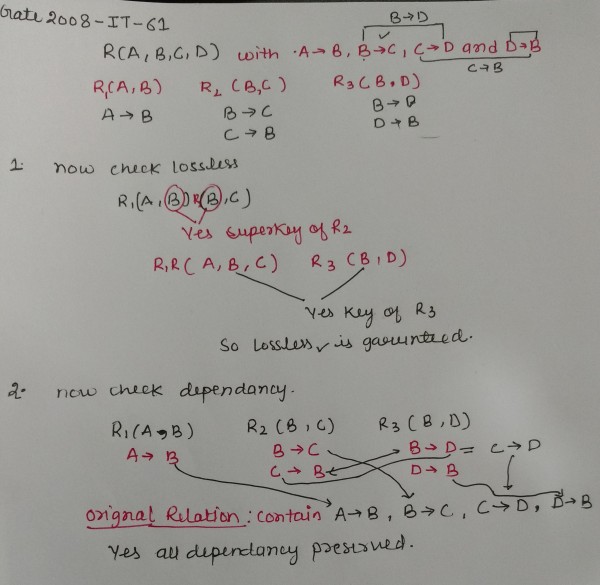 Gate 2008-IT-61
B→D
R(A,B,C,D) with A→B, B→C, C→D and D→B
C→B
R₁(A,B) R₂(B,C) R₃(B,D)
A→B B→C B→D
C→B D→B
1. now check lossless
R₁(A,B) R(B,C)
Yes superkey of R2
R₁R(A,B,C) R₃(B,D)
Yes key of R3
So lossless ✓ is garunteed.
2. now check dependancy.
R₁(A,B) R₂(B,C) R₃(B,D)
A→B B→C B→D = C→D
C→B D→B
orignal Relation: contain A→B, B→C, C→D, D→B
Yes all dependancy preserved.